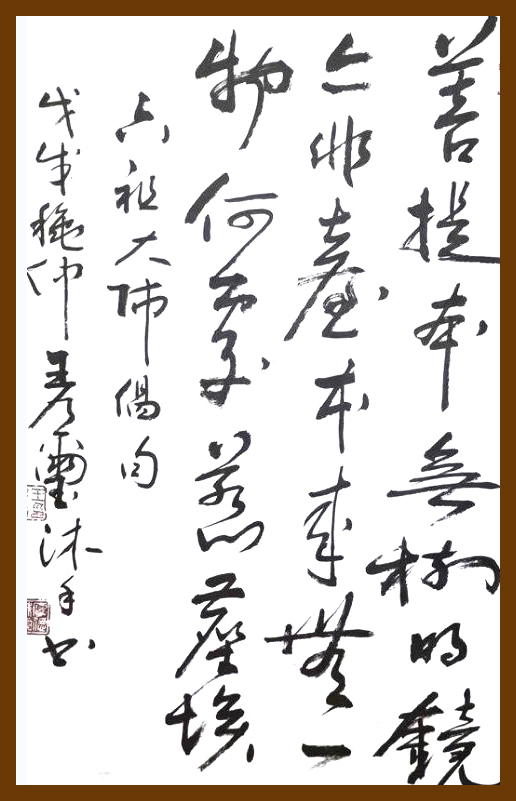 菩提本無樹明鏡
亦非臺本來無一
物何處惹塵埃
六祖大師偈句
戊戌穐仲王彥璽沐手書